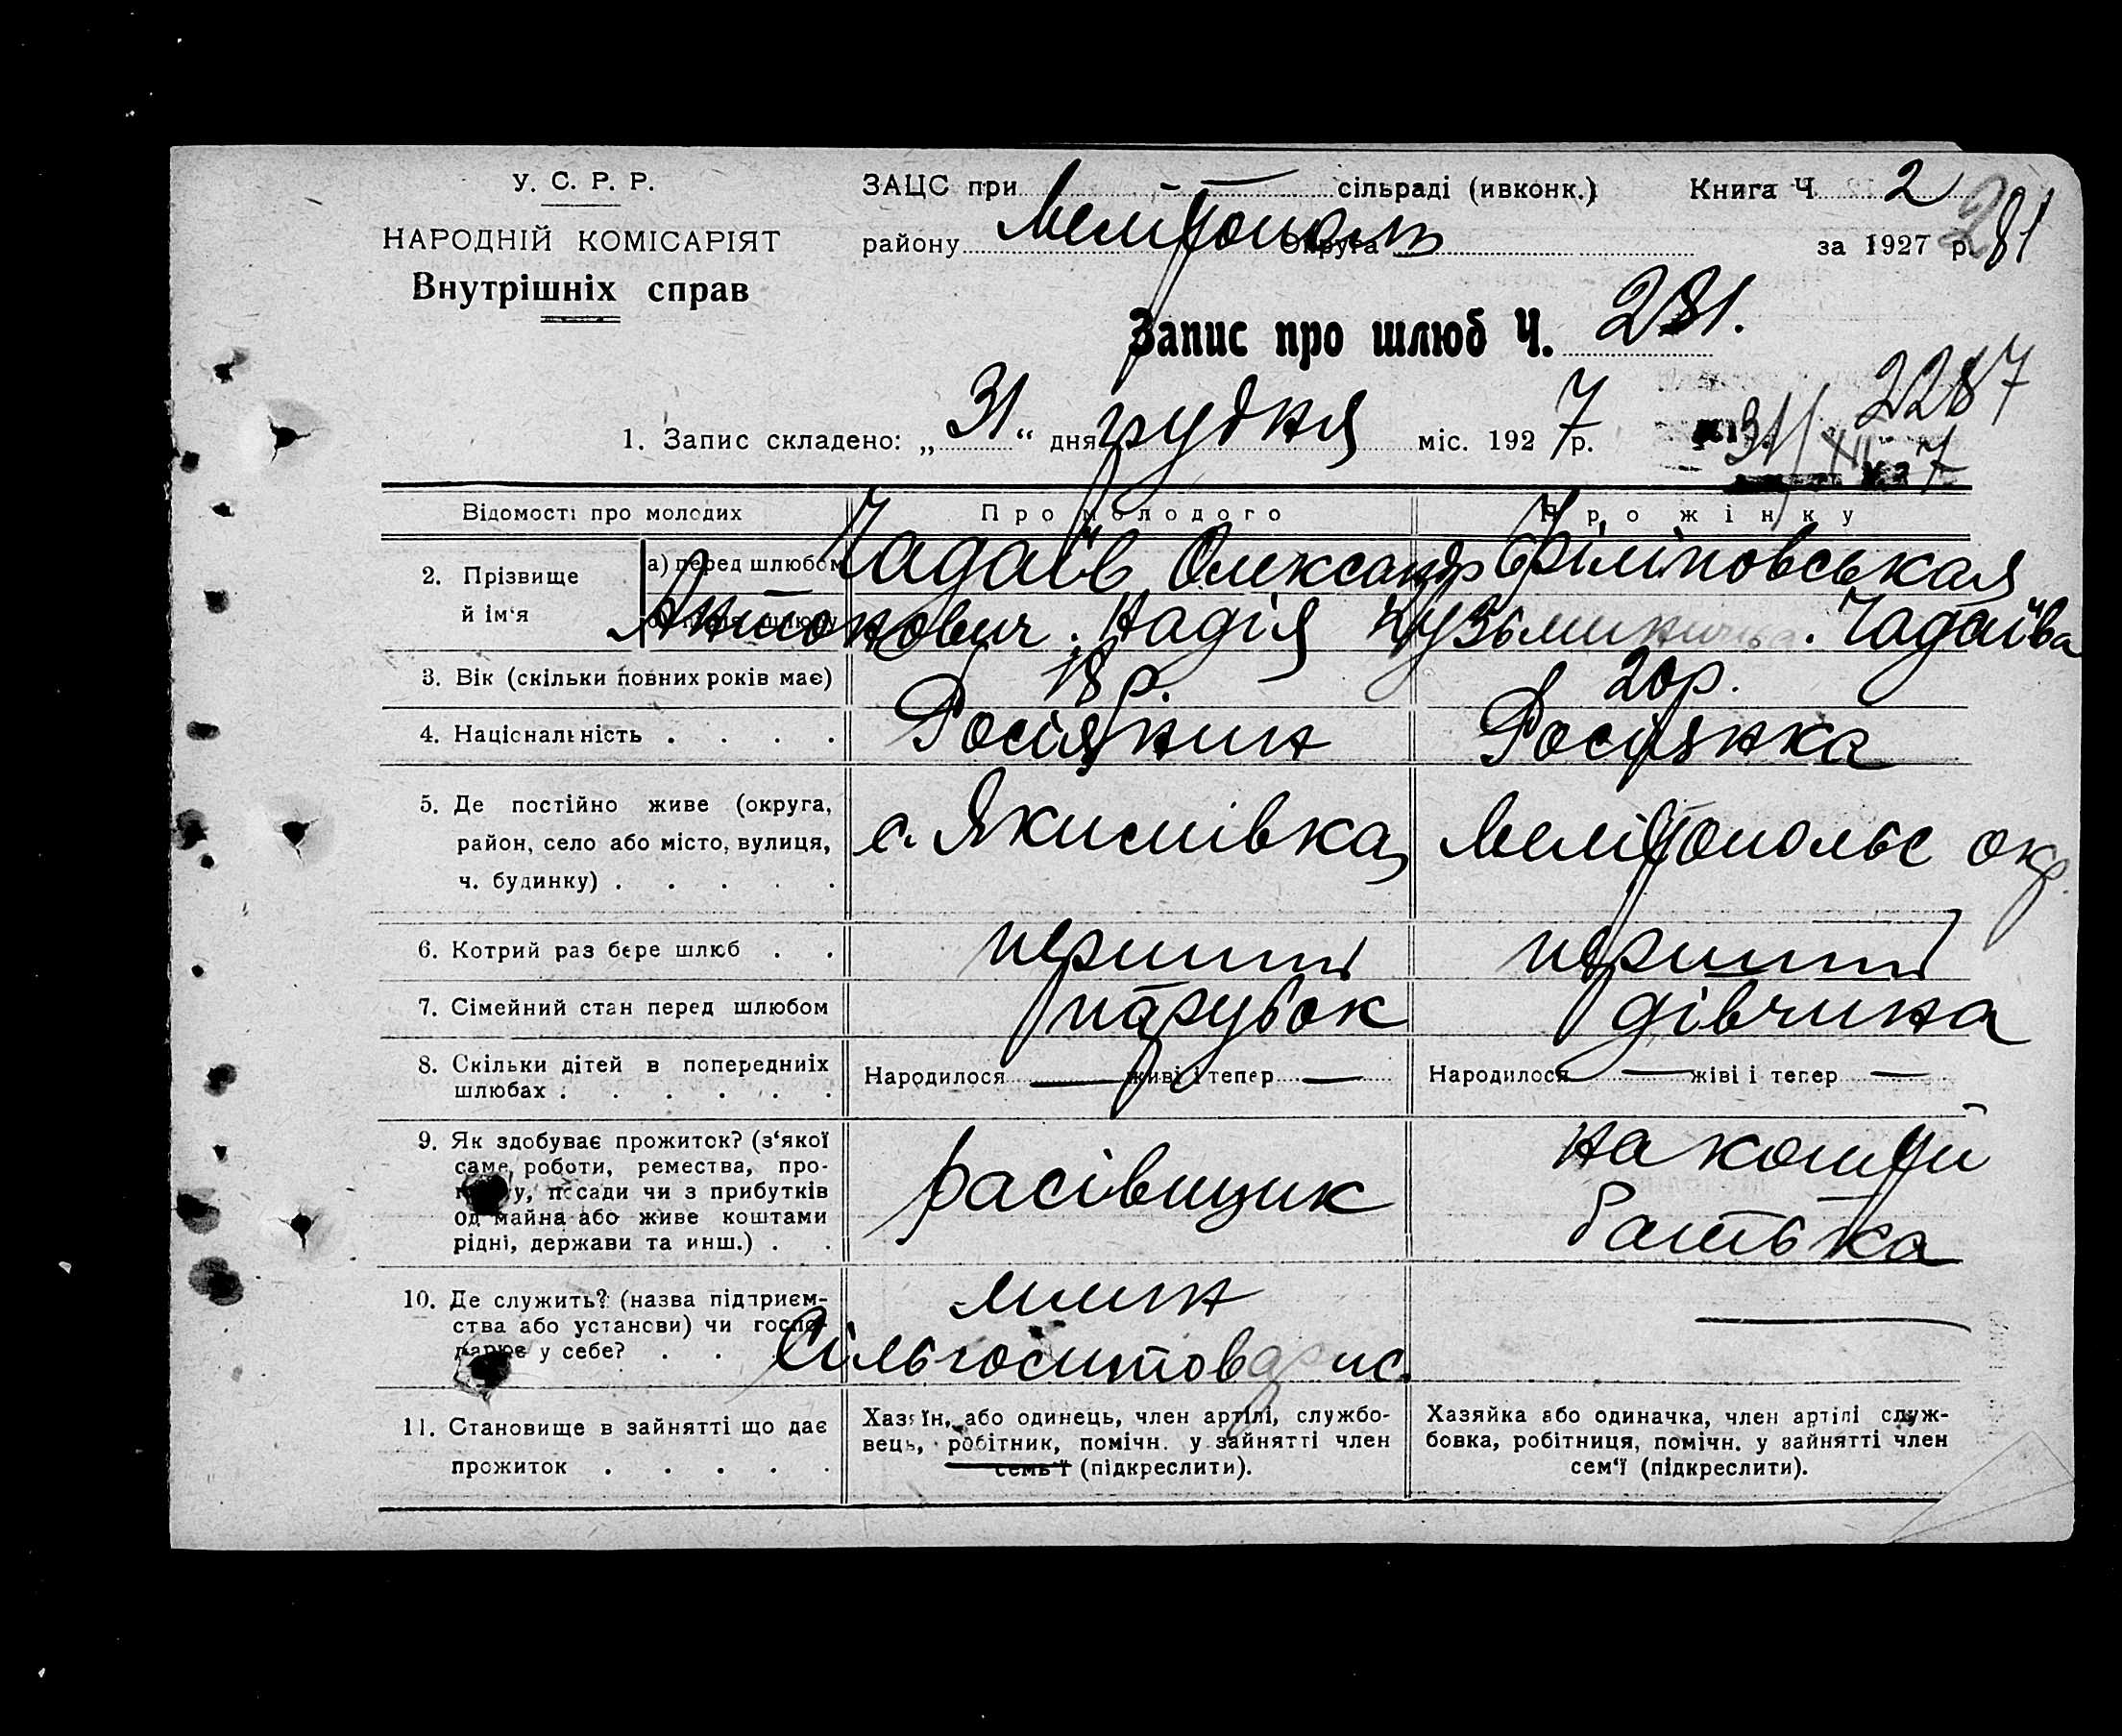 У. С. Р. Р.
НАРОДНІЙ КОМІСАРІЯТ
Внутрішніх справ
ЗАЦС при - — сільраді (ивконк.) Книга Ч 2
281
району Мелітополь Округа за 1927 р.
Запис про шлюб Ч. 281.
2287
1. Запис складено: „31“ дня грудня міс. 1927 р.
31/XII 7
Відомості про молодих Про молодого Про жінку
2. Прізвище й ім‘я
а) перед шлюбом Чадаїв Олександр Філіповськая
Антонович. Надія Кузьминична. Чадаїва
3. Вік (скільки повних років має) 18 р. 20 р.
4. Національність . . . . Росіянин Росіянка
5. Де постійно живе (округа,
район, село або місто, вулиця,
ч. будинку) . . . . .
с. Якимівка, Мелітопольс окр.
6. Котрий раз бере шлюб . . перший перший
7. Сімейний стан перед шлюбом парубок дівчина
8. Скільки дітей в попередниіх
шлюбах . . . . . .
Народилося — живі і тепер — Народилося — жіві і тепер —
9. Як здобуває прожиток? (з‘якої
саме роботи, ремества, про-
мислу, посади чи з прибутків
од майна або живе коштами
рідні, держави та инш.) . .
расівщик на кошти
батька
10. Де служить? (назва підприєм-
ства або установи) чи госпо-
дарює у себе? . . .
млин —
Сільгосптоварис.
11. Становище в зайнятті що дає
прожиток . . . . .
Хазяїн, або одинець, член артілі, службо-
вець, робітник, помічн. у зайнятті член
семь‘ї (підкреслити).
Хазяйка або одиначка, член артілі служ-
бовка, робітниця, помічн. у зайнятті член
сем‘ї (підкреслити).